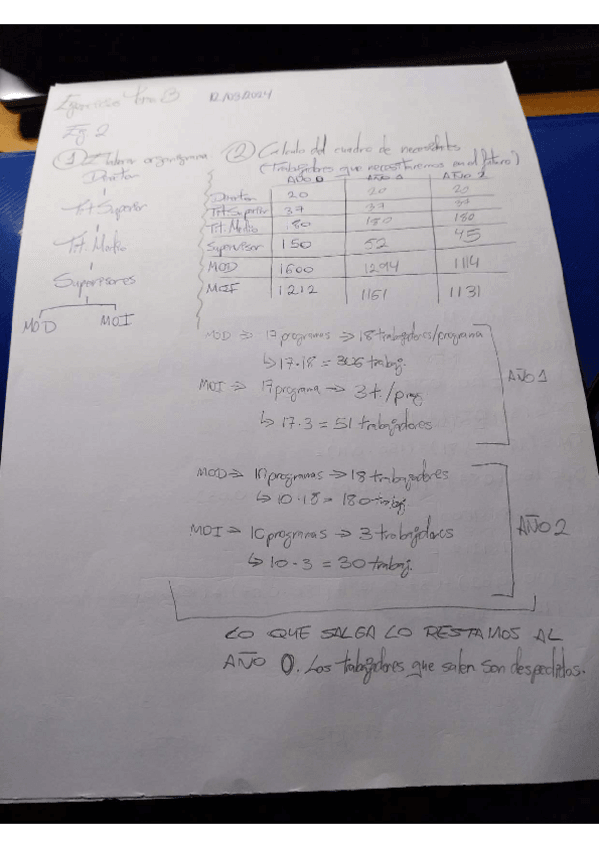 Ejercicio Tema 3 12/03/2024
Ej 2
① Elaborar organigrama
Director
Tit. Superior
Tit. Medio
Supervisores
MOD MOI
② Calculo del cuadro de necesidades
(trabajadores que necesitaremos en el futuro)
AÑO 0 AÑO 1 AÑO 2
Director 20 20 20
Tit. Superior 37 37 37
Tit. Medio 180 180 180
Supervisor 150 52 45
MOD 1600 1294 1114
MOI 1212 1161 1131
MOD => 17 programas -> 18 trabajadores/programa
↳ 17·18 = 306 trabaj.
MOI => 17 programa -> 3 t./prog
↳ 17·3 = 51 trabajadores
AÑO 1
MOD => 10 programas -> 18 trabajadores
↳ 10·18 = 180 trabaj.
MOI => 10 programas -> 3 trabajadores
↳ 10·3 = 30 trabaj.
AÑO 2
LO QUE SALGA LO RESTAMOS AL
AÑO 0. Los trabajadores que salen son despedidos.